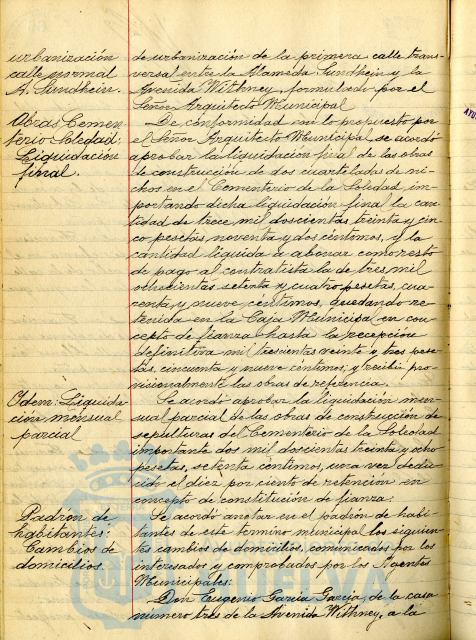 urbanización
calle normal
A. Sundhein.
de urbanización de la primera calle trans-
versal entre la Alameda Sundhein y la
Avenida Withney, formulado por el
Señor Arquitecto Municipal
Obras Cemen-
terio Soledad:
Liquidación
final.
De conformidad con lo propuesto por
el Señor Arquitecto Municipal se acordó
aprobar la liquidación final de las obras
de construcción de dos cuarteladas de ni-
chos en el Cementerio de la Soledad, im-
portando dicha liquidación final la can-
tidad de trece mil doscientas treinta y cin-
co pesetas, noventa y dos céntimos, y la
cantidad líquida a abonar como resto
de pago al contratista la de tres mil
ochocientas setenta y cuatro pesetas, cua-
renta y nueve céntimos, quedando re-
tenida en la Caja Municipal en con-
cepto de fianza hasta la recepción
definitiva mil trescientas veinte y tres pese-
tas, cincuenta y nueve céntimos; y recibir pro-
visionalmente las obras de referencia.
Idem: Liquida-
ción mensual
parcial
Se acordó aprobar la liquidación men-
sual parcial de las obras de construcción de
sepulturas del Cementerio de la Soledad
importante dos mil doscientas treinta y ocho
pesetas, setenta céntimos, una vez dedu-
cido el diez por ciento de retención en
concepto de constitución de fianza:
Padrón de
habitantes:
Cambios de
domicilios.
Se acordó anotar en el padrón de habi-
tantes de este término municipal los siguien-
tes cambios de domicilios, comunicados por los
interesados y comprobados por los Agentes
Municipales:
Don Eugenio García García, de la casa
número tres de la Avenida Withney, a la
HUELVA